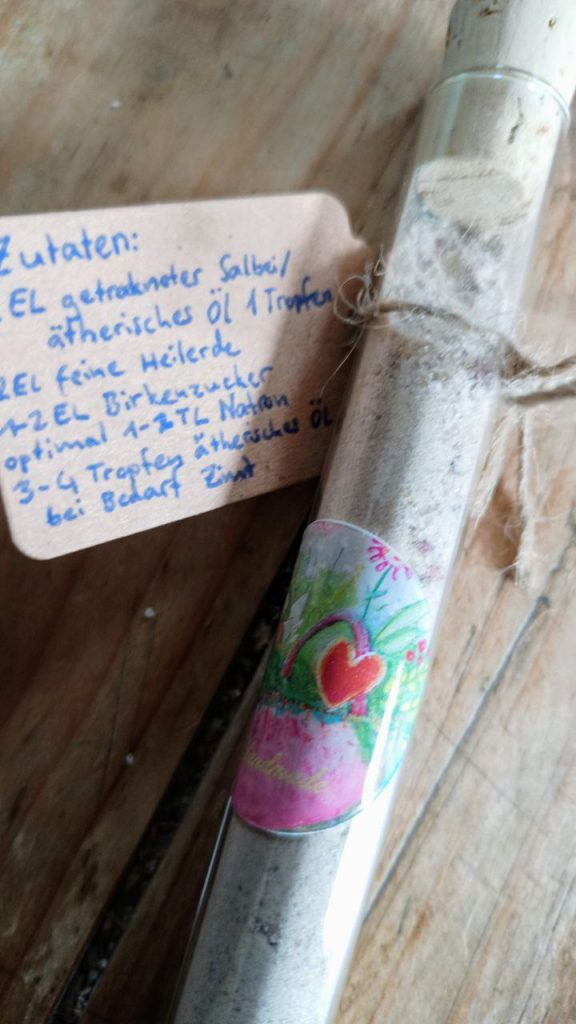 Zutaten:
EL getrokneter Salbei/
ätherisches Öl 1 Tropfen
2EL feine Heilerde
1-2 EL Birkenzucker
optimal 1-2 TL Natron
3-4 Tropfen ätherisches Öl
bei Bedarf Zimt